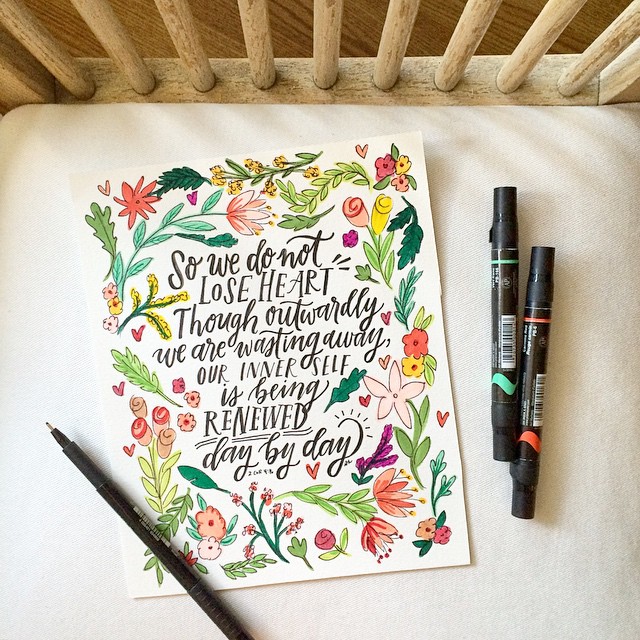 So we do not
LOSE HEART
Though outwardly
we are wasting away,
OUR INNER SELF
is being
RENEWED
day by day